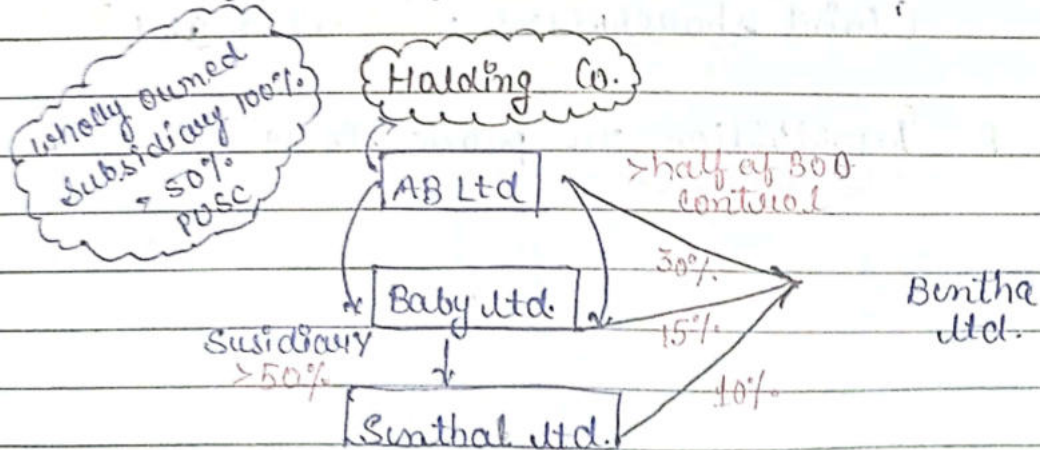 Wholly Owned
Subsidiary 100%.
> 50%
PUSC
Halding Co.
AB Ltd
>half of BOD
control
30%.
Baby ltd.
Bintha
ltd.
Susidiary
>50%
15%.
10%.
Sinthal ltd.